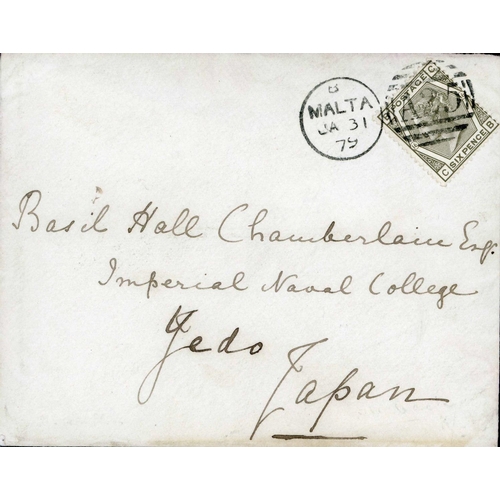 B
MALTA
JA 31
79
POSTAGE
SIX PENCE
A25
C
B
C
Basil Hall Chamberlain Esq.
Imperial Naval College
Yedo
Japan